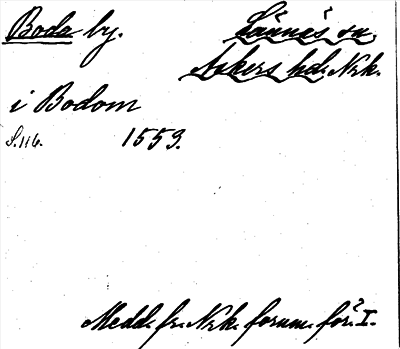 Boda by.
Lännäs sn.
Askers hd. Nrk.
i Bodom
S. 116. 1559.
Medd. fr. Nrk. fornm. för. I.